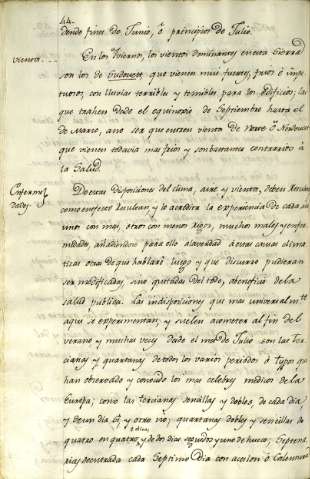 44.
desde fines de Junio, ó principios de Julio.
vientos.
En los Ivierno, los vientos dominantes en esta tierra
son los de que vienen mui fuertes, frios é impe
tuosos, con lluvias terribles y temibles para los edificios, los
que trahen desde el equinoxio de Septiembre hasta el
de Marzo, a no ser que entren vientos de Norte ó Nordueste
que vienen todavia mas frios y son bastante contrarios á
la Salud.
Enferme
dades.
De estas disposiciones del clima, aire y vientos, deben
como efectos y lo acredita la experiencia de cada
unos con mas, otros con menos rigor, muchos males y enfer
medades, añadiendose para ello á la verdad á estas causas clima
ticas otras de que hablaré luego y que discurro pudieran
ser modificadas, sino quitadas del todo, á beneficio de la
salud publica. Las indisposiciones que mas universalmte
aqui se experimentan, y suelen acometer al fin del
verano y muchas veces desde el mes de Julio son las Ter
cianas y quartanas de todos los varios periodos ó typos que
han observado y conocido los mas celebres medicos de la
Europa; como las tercianas sencillas y dobles de cada dia
y de un dia si, y otro no; quartanas dobles y sencillas de
quatro en quatro dias, y de dos dias seguidos y uno de hueco; Septena
rias de entrada cada Septimo dia con